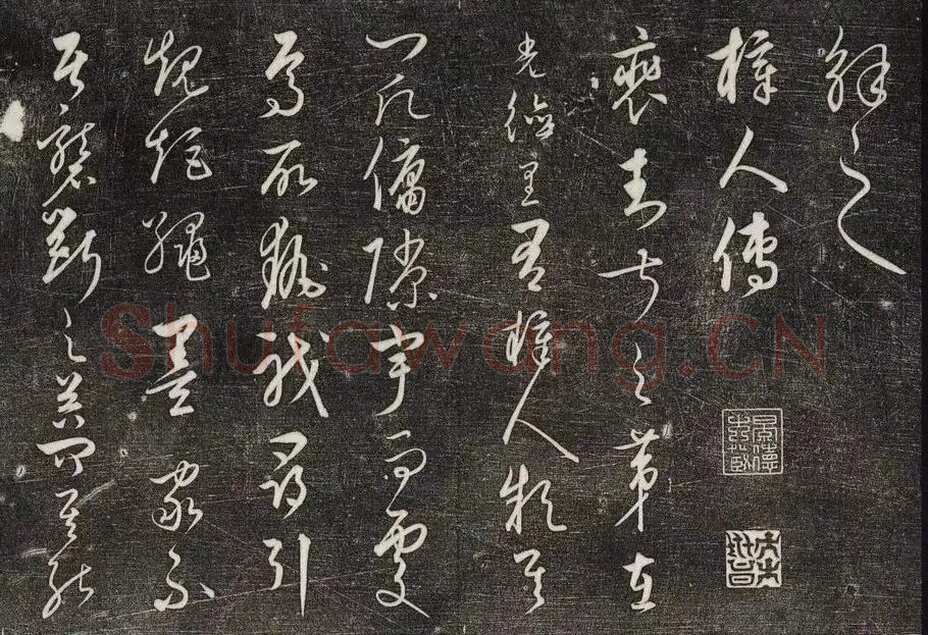 解之
梓人傳
裴封叔之第在
光德里有梓人款其
門願傭隙宇而處
焉所執職尋引
規矩繩墨家不
居礱斲之器問其能
Shufawang.CN